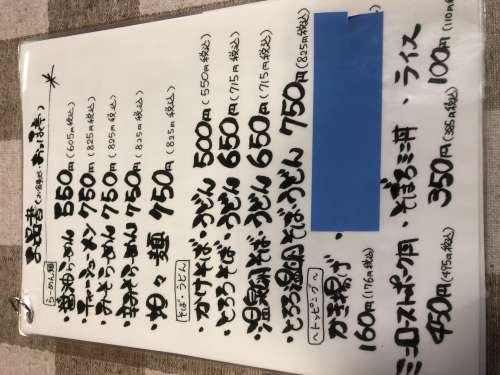 らーめん類
・醤油らーめん 550円(605円税込)
・チャーシューメン 750円(825円税込)
・みそらーめん 750円(825円税込)
・辛みそらーめん 750円(825円税込)
・坦々麺 750円(825円税込)
そば・うどん
・かけそば・うどん 500円(550円税込)
・とろろそば・うどん 650円(715円税込)
・温玉そば・うどん 650円(715円税込)
・とろろ温玉そば・うどん 750円(825円税込)
〜トッピング〜
・かき揚げ
160円(176円税込)
ミニローストポーク丼
450円(495円税込)
・そぼろミニ丼
350円(385円税込)
・ライス
100円(110円